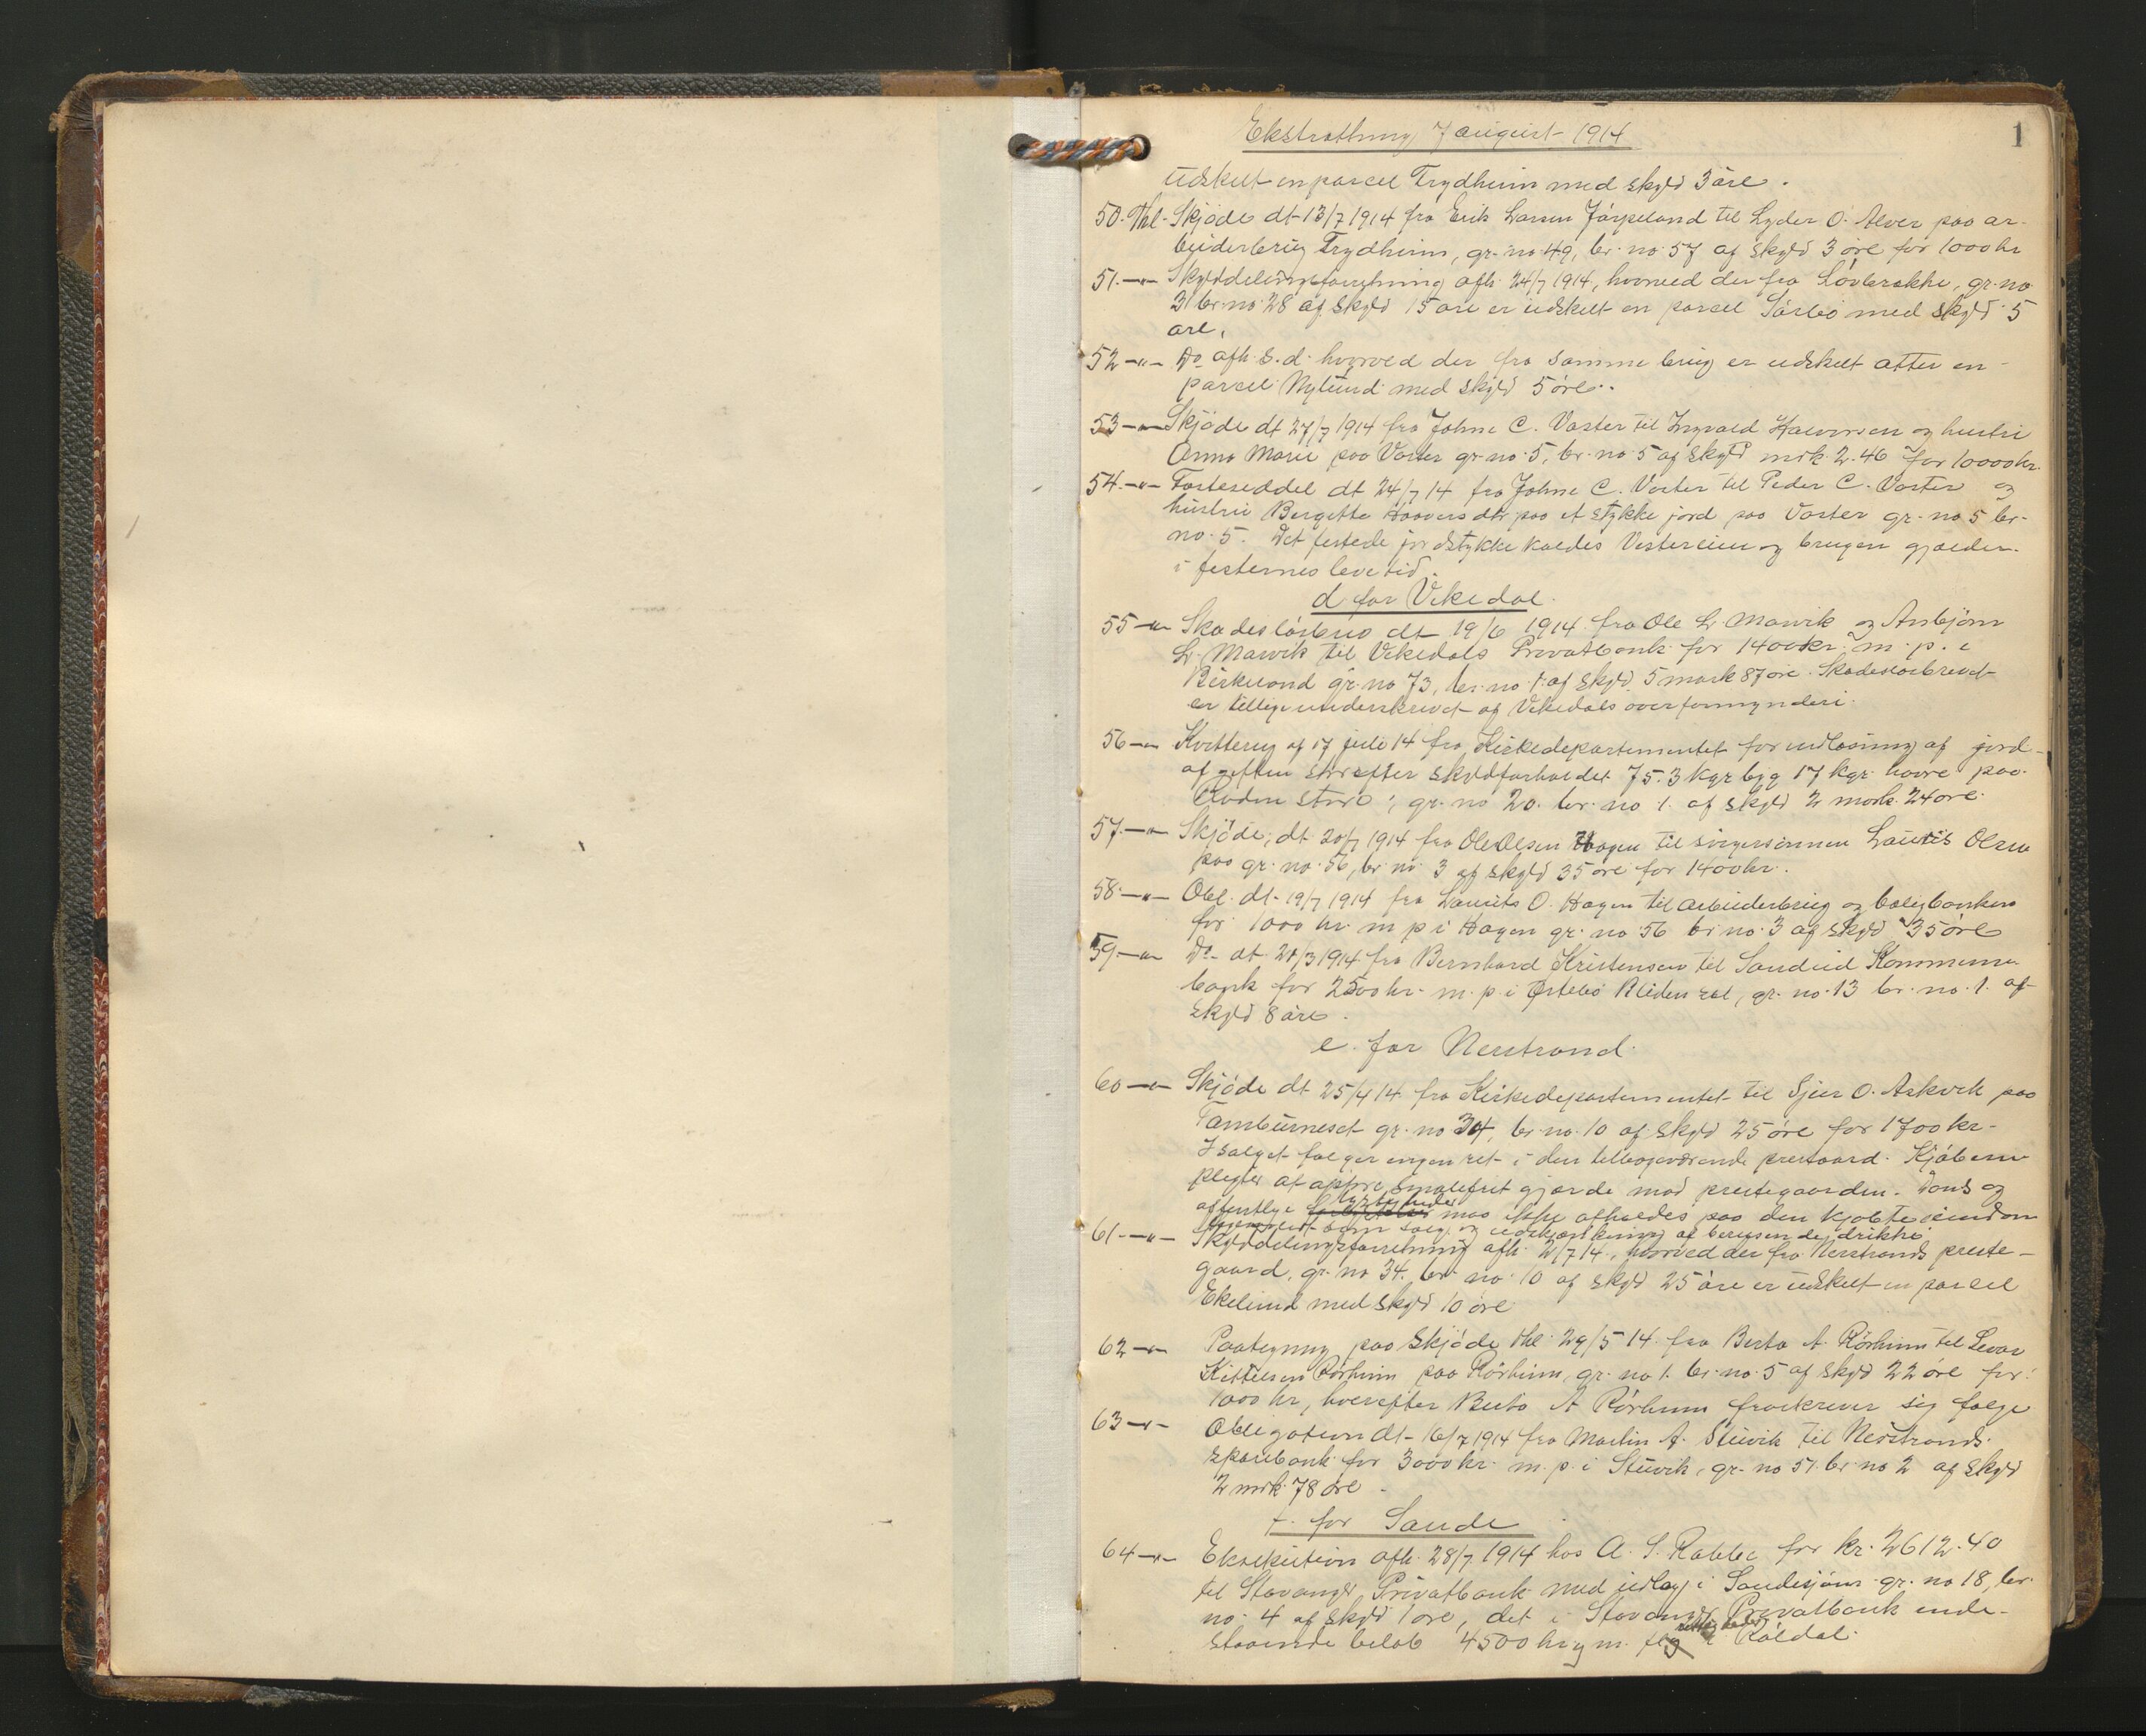 1
Ekstrathing 7 august 1914
udskilt en parcel Frydheim med skyld 3 øre.
50. Thl. Skjøde dt 13/7 1914 fra Erik Larsen Jørpeland til Lyder O. Alver paa ar-
beiderbrug Frydheim, gr. no. 49, br. no. 57 af skyld 3 øre for 1000 kr
51.—"— Skylddelingsforretning afh. 24/7 1914, hvorved der fra Løvbrække, gr. no
31 br. no 28 af skyld 15 øre er udskilt en parcel Sørbø med skyld 5
øre.
52—"— Do afh. s. d. hvorved der fra samme brug er udskilt atter en
parcel Nylund med skyld 5 øre.
53—"— Skjøde dt 27/7 1914 fra Johne C. Vaster til Ingvald Halvorsen og hustru
Anna Marie paa Vaster gr. no. 5, br. no. 5 af skyld mrk. 2.46 for 10000 kr.
54.—"— Festeseddel dt 24/7 14 fra Johne C. Vaster til Peder C. Vaster og
hustru Bergitte Haaversdtr paa et stykke jord paa Vaster gr. no 5 br.
no. 5. Det festede jordstykke kaldes og brugen gjælder
i festernes levetid.
d for Vikedal.
55—"— Skadesløsbrev dt 19/6 1914 fra Ole L. Marvik og Anbjørn
L. Marvik til Vikedals Privatbank for 1400 kr. m. p. i
Birkeland gr. no 73, br. no 1. af skyld 5 mark 87 øre. Skadesløsbrevet
er tillige underskrevet af Vikedals overformynderi.
56—"— Kvittering af 17 juli 14 fra Kirkedepartementet for indløsning af jord-
afgiften efter skyldforholdet 75.3 kgr byg 17 kgr. havre paa
store, gr. no 20. br. no 1. af skyld 2 mark. 24 øre.
57.—"— Skjøde, dt. 20/7 1914 fra Ole Olsen Hagen til svigersønnen Laurits Olsen
paa gr. no. 56, br. no. 3 af skyld 35 øre for 1400 kr.
58.—"— Obl. dt. 19/7 1914 fra Laurits O. Hagen til arbeiderbrug og boligbanken
for 1000 kr. m p i Hagen gr. no 56 br. no. 3 af skyld 35 øre
59.—"— Do dt. 20/3 1914 fra Bernhard Kristensen til Sandeid Kommune-
bank for 2500 kr. m. p. i Østebø gr. no. 13 br. no. 1. af
skyld 8 øre.
e. for Nerstrand.
60—"— Skjøde dt 25/4 14 fra Kirkedepartementet til Sjur O. Askvik paa
Tamburneset gr. no 34, br. no. 10 af skyld 25 øre for 1700 kr.
I salget følger ingen ret i den tilbageværende prestgaard. Kjøberen
pligter at opføre smalefrit gjærde mod prestegaarden. Dans og
lystigheder
offentlige maa ikke afholdes paa den kjøbte eiendom
som salg og udskjænkning af berusende drikke
61.—"— Skylddelingsforretning afh. 2/7 14, hvorved der fra Nerstrands preste-
gaard, gr. no 34. br. no 10 af skyld 25 øre er udskilt en parcel
Ekelund med skyld 10 øre
62—"— Paategning paa Skjøde thl. 29/5 14 fra Berta A. Rørheim til Levar
Kittilsen Rørheim paa Rørheim, gr. no 1. br. no. 5 af skyld 22 øre for
1000 kr, hvorefter Berta A Rørheim fraskriver sig følge
63—"— Obligation dt. 16/7 1914 fra Martin A. Stuvik til Nerstrands
sparebank for 3000 kr. m. p. i Stuvik, gr. no 51. br. no 2 af skyld
2 mrk. 78 øre.
f. for Saude
64—"— Eksekution afh. 28/7 1914 hos A. S. Rabbe for kr. 2612.40
til Stavanger Privatbank med udlæg i Saudesjøen gr. no 18, br.
no. 4 af skyld 1 øre, det i Stavanger Privatbank inde-
rettigheder
staaende beløb 4500 kr og m. i Røldal.